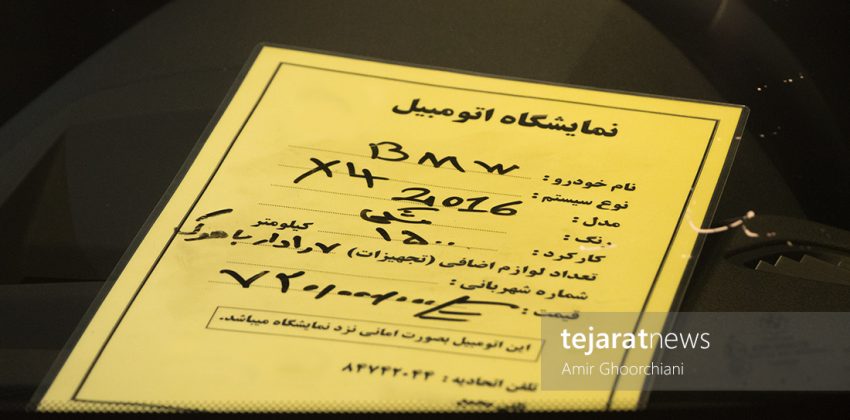 نمایشگاه اتومبیل
نام خودرو : BMW
نوع سیستم : X4
مدل : 2016
رنگ : مشکی
کارکرد : ۱۵۰۰۰ کیلومتر
تعداد لوازم اضافی (تجهیزات) ۷ رادار با هوک
شماره شهربانی :
قیمت : ۷۲۰,۰۰۰,۰۰۰
این اتومبیل بصورت امانی نزد نمایشگاه میباشد.
تلفن اتحادیه : ۸۴۷۴۲۰۴۴
tejaratnews
Amir Ghoorchiani